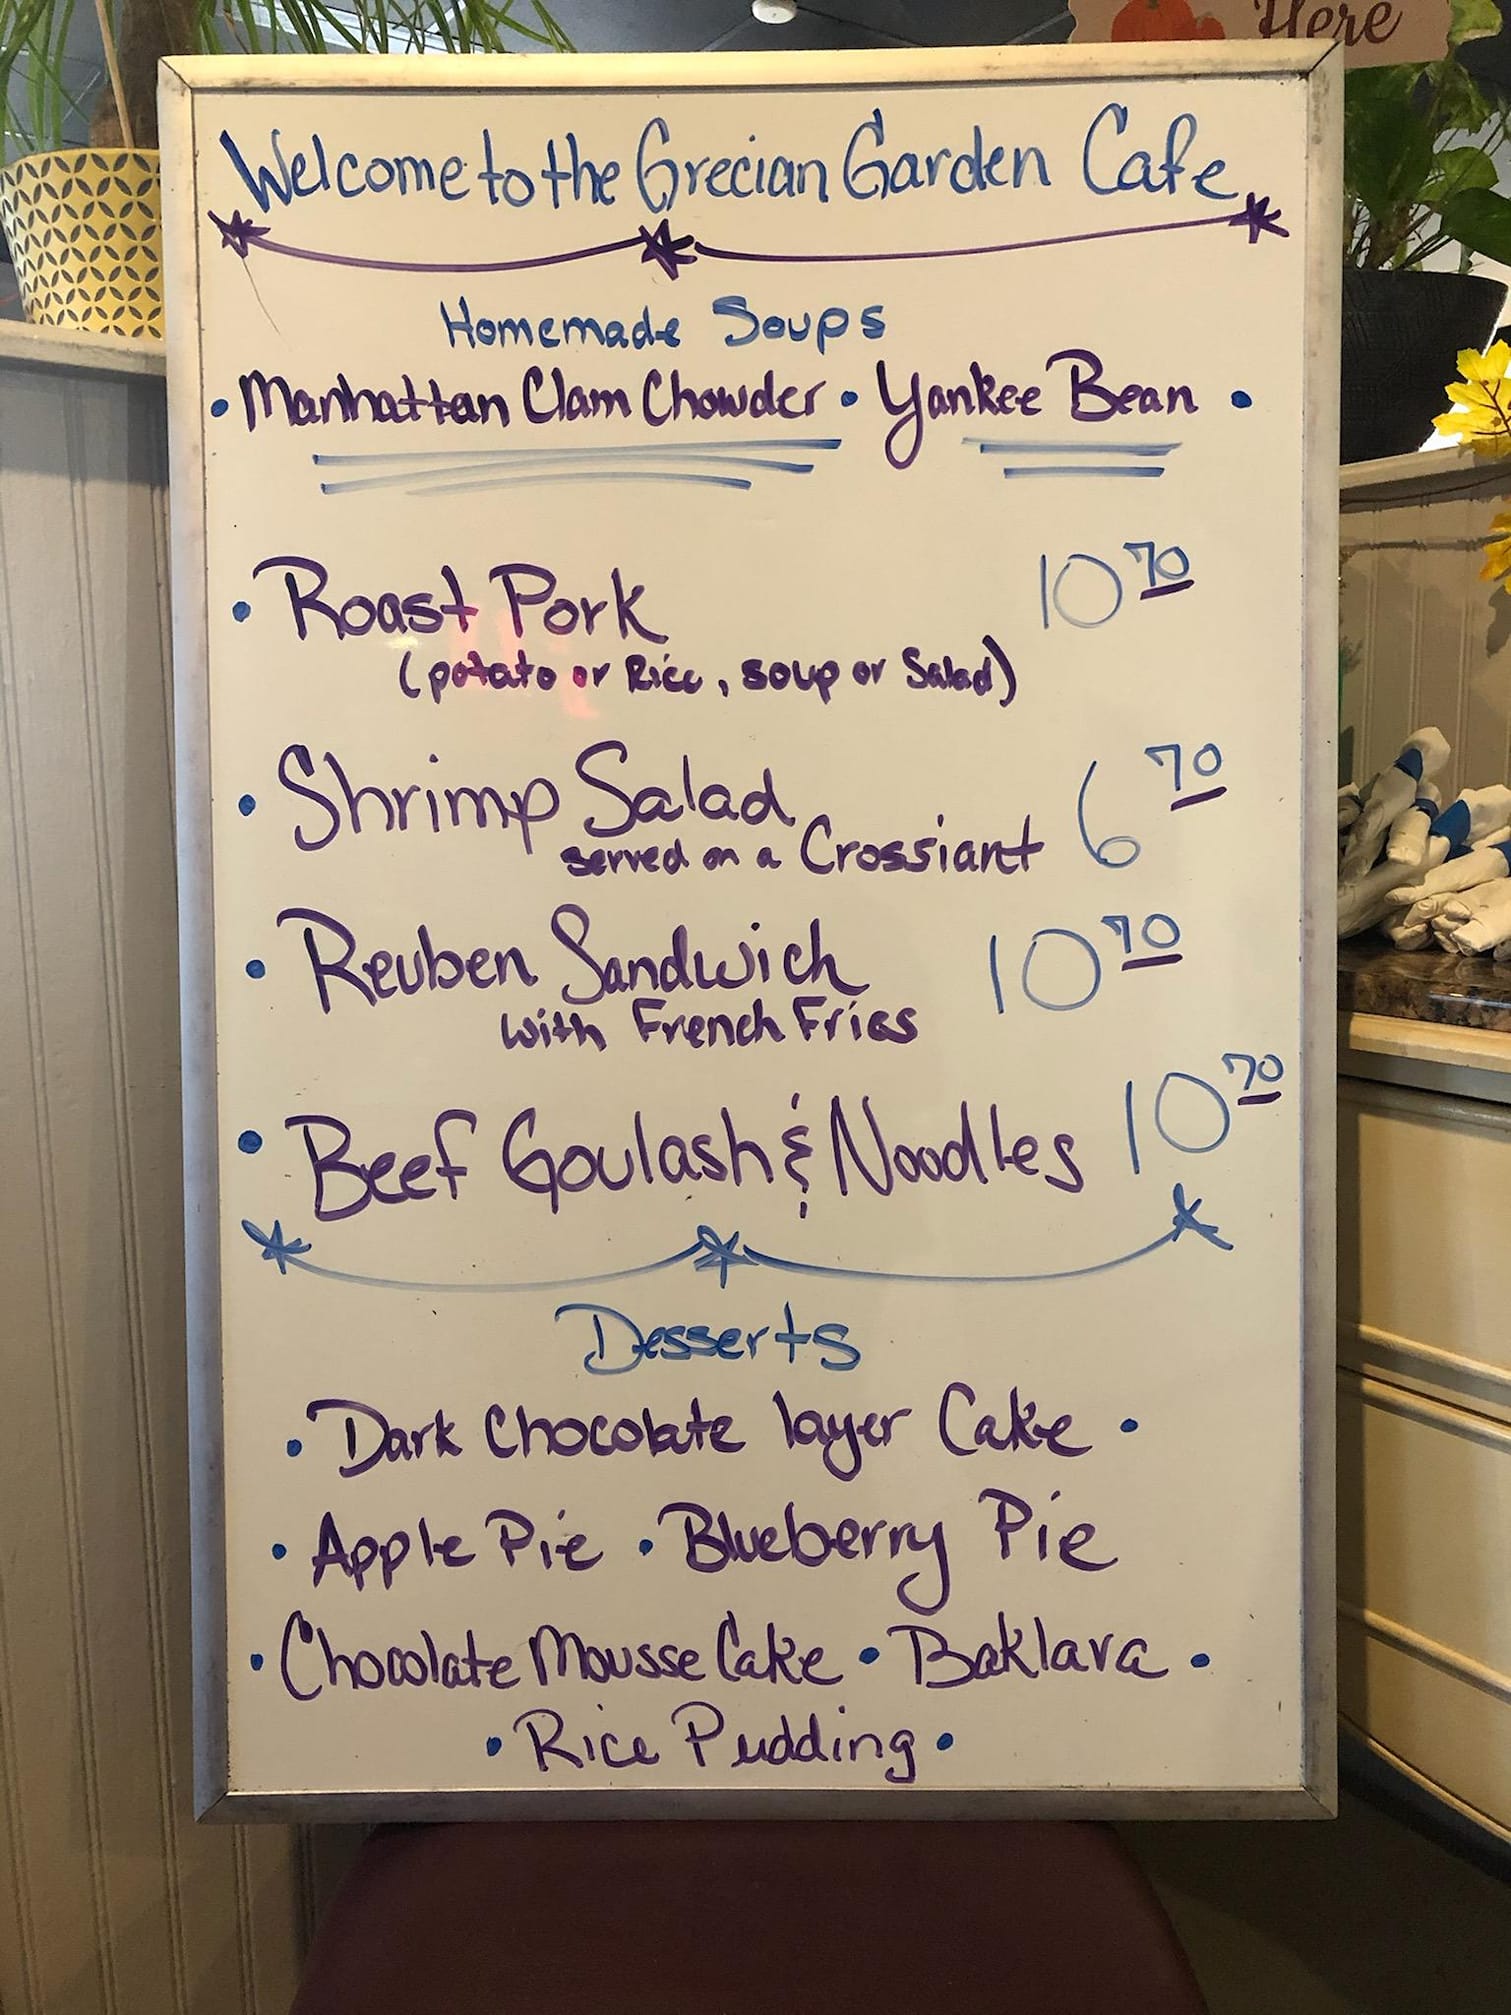 Here
Welcome to the Grecian Garden Cafe
Homemade Soups
• Manhattan Clam Chowder • Yankee Bean •
• Roast Pork 10 70
(potato or Rice, soup or Salad)
• Shrimp Salad 6 70
served on a Crossiant
• Reuben Sandwich 10 70
with French Fries
• Beef Goulash & Noodles 10 70
Desserts
• Dark Chocolate layer Cake •
• Apple Pie • Blueberry Pie
• Chocolate Mousse Cake • Baklava •
• Rice Pudding •